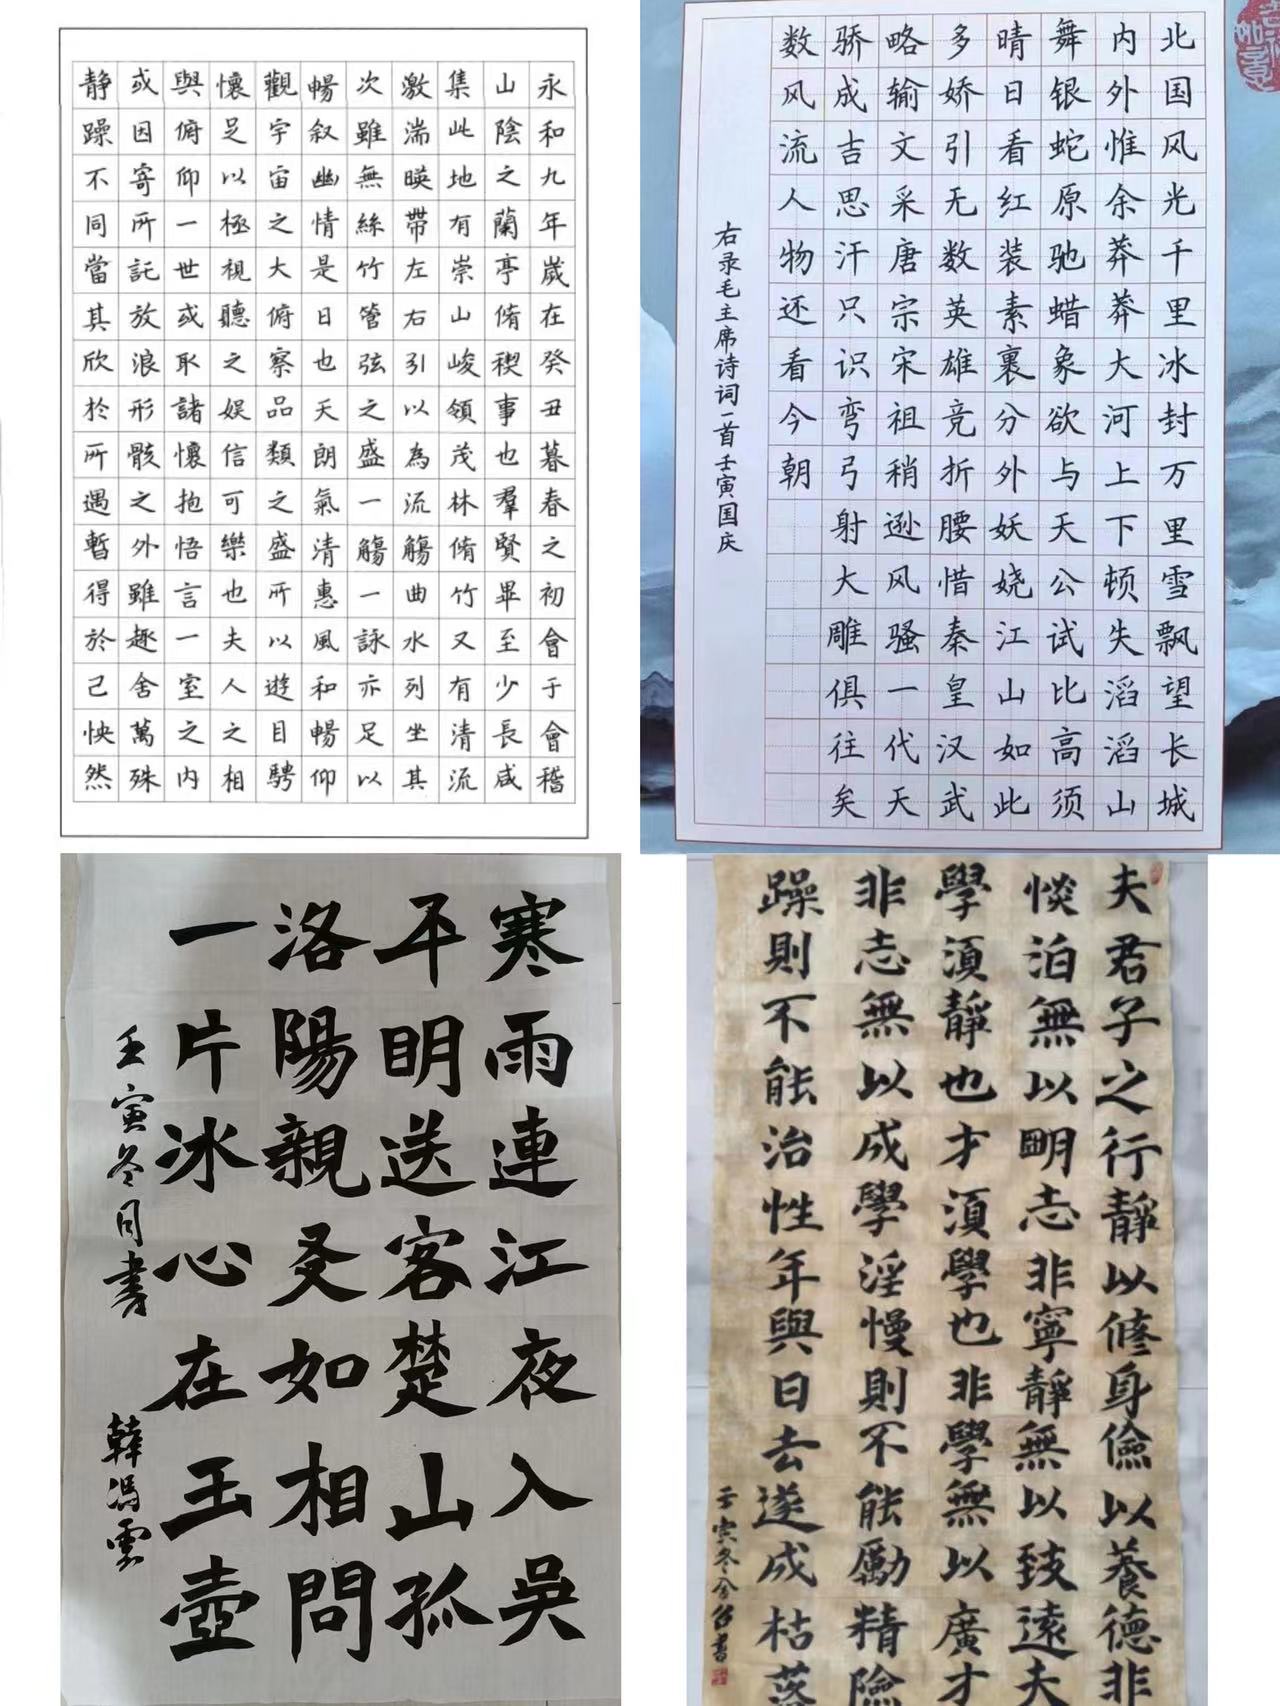 永和九年歲在癸丑暮春之初會于會稽
山陰之蘭亭脩禊事也羣賢畢至少長咸
集此地有崇山峻領茂林脩竹又有清流
激湍暎帶左右引以為流觴曲水列坐其
次雖無絲竹管弦之盛一觴一詠亦足以
暢叙幽情是日也天朗氣清惠風和暢仰
觀宇宙之大俯察品類之盛所以遊目騁
懷足以極視聽之娱信可樂也夫人之相
與俯仰一世或取諸懷抱悟言一室之內
或因寄所託放浪形骸之外雖趣舍萬殊
静躁不同當其欣於所遇暫得於己怏然
北国风光千里冰封万里雪飘望长城
内外惟余莽莽大河上下顿失滔滔山
舞银蛇原驰蜡象欲与天公试比高须
晴日看红装素裹分外妖娆江山如此
多娇引无数英雄竞折腰惜秦皇汉武
略输文采唐宗宋祖稍逊风骚一代天
骄成吉思汗只识弯弓射大雕俱往矣
数风流人物还看今朝
右录毛主席诗词一首壬寅国庆
寒雨連江夜入吳
平明送客楚山孤
洛陽親友如相問
一片冰心在玉壺
壬寅冬月書 韓馮雲
夫君子之行靜以修身儉以養德非
惔泊無以明志非寧靜無以致遠夫
學須靜也才須學也非學無以廣才
非志無以成學淫慢則不能勵精險
躁則不能治性年與日去遂成枯落
壬寅冬書